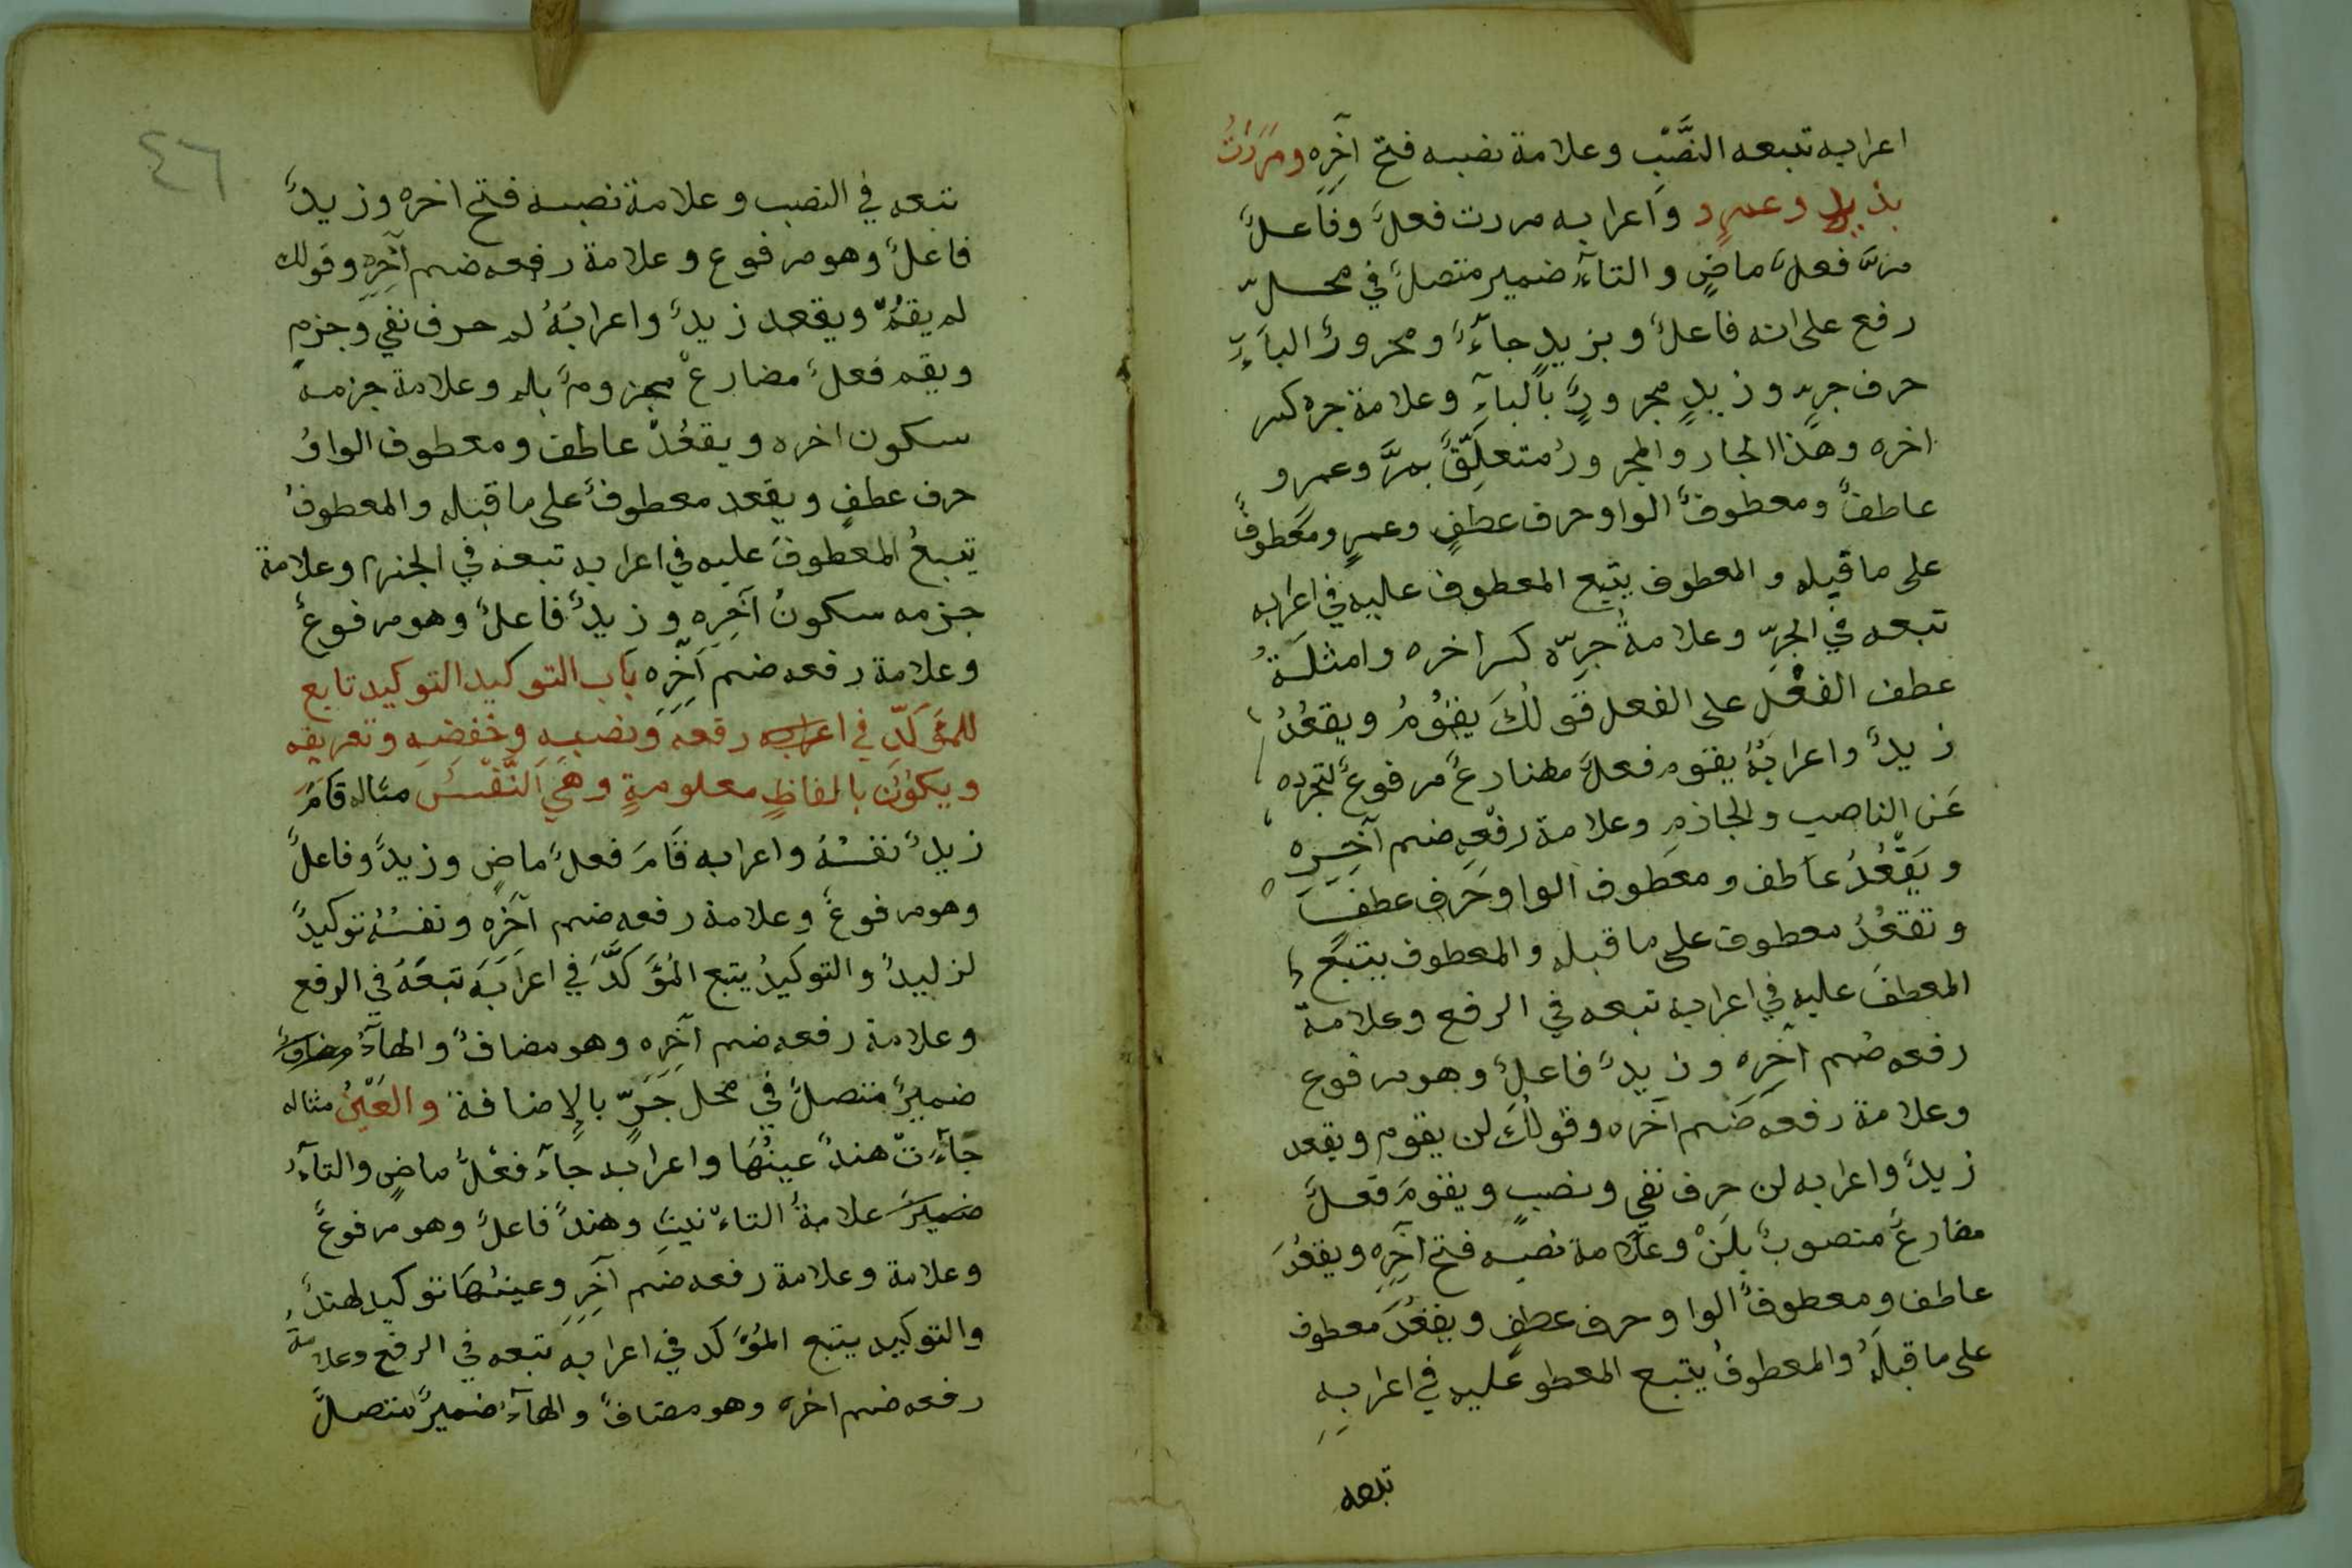 اعرابه تتبعه النَّصْب وعلامة نصبه فتح آخِرِه ومَرَرْتُ
بزيدٍ وعمرٍو واعرابه مررت فعلٌ وفاعلٌ
مرَّ فعلٌ ماضٍ والتآءُ ضمير متصلٌ في محلّ
رفع على انه فاعلٌ وبزيدٍ جآرٌّ ومجرورٌ البآءِ
حرف جرٍ وزيدٍ مجرورٌ بالبآءِ وعلامة جره كسر
اخره وهذا الجار والمجرورُ متعلِّقٌ بمرَّ وعمرٍو
عاطفٌ ومعطوفٌ الواو حرف عطفٍ وعمرٍو معطوفٌ
على ما قبله والمعطوف يتبع المعطوف عليه في اعرابه
تبعه في الجرِّ وعلامةُ جرِّه كسر اخره وامثلةُ
عطف الفعْل على الفعل قولُكَ يقُومُ ويقعُدُ
زيدٌ واعرابُهُ يقوم فعلٌ مضارعٌ مرفوعٌ لتجرده
عَن الناصب والجازم وعلامة رفْعِه ضم آخِرِه
ويَقْعُدُ عاطف ومعطوف الواو حَرف عطف
وتقعُدُ معطوف على ما قبله والمعطوف يتبَع
المعطفَ عليه في اعرابه تبعه في الرفع وعلامة
رفعه ضم آخره وزيدٌ فاعلٌ وهو مرفوع
وعلامة رفعه ضَم آخره وقولُكَ لن يقوم ويقعد
زيدٌ واعرابه لن حرف نفي ونصبٍ ويقومَ فعلٌ
مضارعٌ منصوبٌ بلَنْ وعلامة نصبه فتح آخِرِه ويقعُدَ
عاطف ومعطوفٌ الواو حرف عطفٍ ويقعُدَ معطوف
على ما قبلَهُ والمعطوفُ يتبع المعطو عليه في اعرابهِ
تبعه
٤٦
تبعه في النصب وعلامة نصبه فتح اخره وزيدٌ
فاعلٌ وهو مرفوع وعلامة رفعه ضم آخِرِه وقولك
لم يقُمْ ويقعد زيدٌ واعرابُهُ لم حرف نفي وجزمٍ
ويقم فعلٌ مضارعٌ مجزومٌ بلم وعلامة جزمه
سكون اخره ويقعُدْ عاطف ومعطوف الواوُ
حرف عطفٍ ويقعد معطوفٌ على ما قبله والمعطوفُ
يتبعُ المعطوفَ عليه في اعرابه تبعه في الجزم وعلامة
جزمه سكونُ آخِرِه وزيدٌ فاعلٌ وهو مرفوعٌ
وعلامة رفعه ضم آخِرِه بَاب التوكيد التوكيد تابع
للمؤكَّدِ في اعرابه رفعه ونصبِه وخفضِه وتعريفه
ويكونُ بالفاظٍ معلومةٍ وهيَ النَّفْسُ مثاله قَامَ
زيدٌ نفسُهُ واعرابه قَامَ فعلٌ ماضٍ وزيدٌ وفاعلٌ
وهو مرفوعٌ وعلامة رفعه ضم آخره ونفسُهُ توكيدٌ
لزيدٌ والتوكيدُ يتبع المُؤَكَّدَ في اعرابه تبعَهُ في الرفع
وعلامة رفعه ضم آخِرِه وهو مضافٌ والهآءُ مضافٌ
ضميرٌ متصلٌ في محل جَرٍّ بالإضافة والعَيْنُ مثاله
جآءَتْ هندٌ عينُهَا واعرابه جآءَ فعْلٌ ماضٍ والتآءُ
ضميرٌ علامةُ التاءنيثِ وهندٌ فاعلٌ وهو مرفوعٌ
وعلامة وعلامة رفعه ضم آخِرِ وعينُهَا توكيد لهندٌ
والتوكيد يتبع المُؤَكد في اعرابه تبعه في الرفع وعلامة
رفعه ضم اخره وهو مضافٌ والهآءُ ضميرٌ متصلٌ